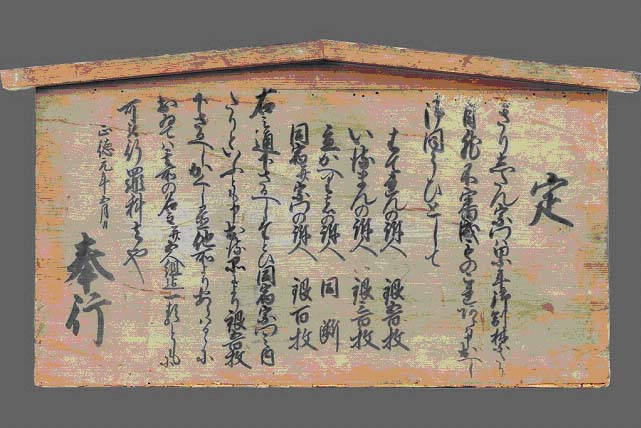 定
きりしたん宗門は累年御制禁たり
自然不審成ものこれあらは申出へし
御ほうひとして
はてれんの訴人 銀五百枚
いるまんの訴人 銀三百枚
立かへり者の訴人 同断
同宿并宗門の訴人 銀百枚
右之通下さるへしたとひ同宿宗門之内
たりといふとも申出る品により銀五百枚
下さるへしかくし置他所よりあらはるゝに
おゐてハ其所の名主并五人組迄一類ともに
可被行罪科者也
正徳元年五月日
奉行